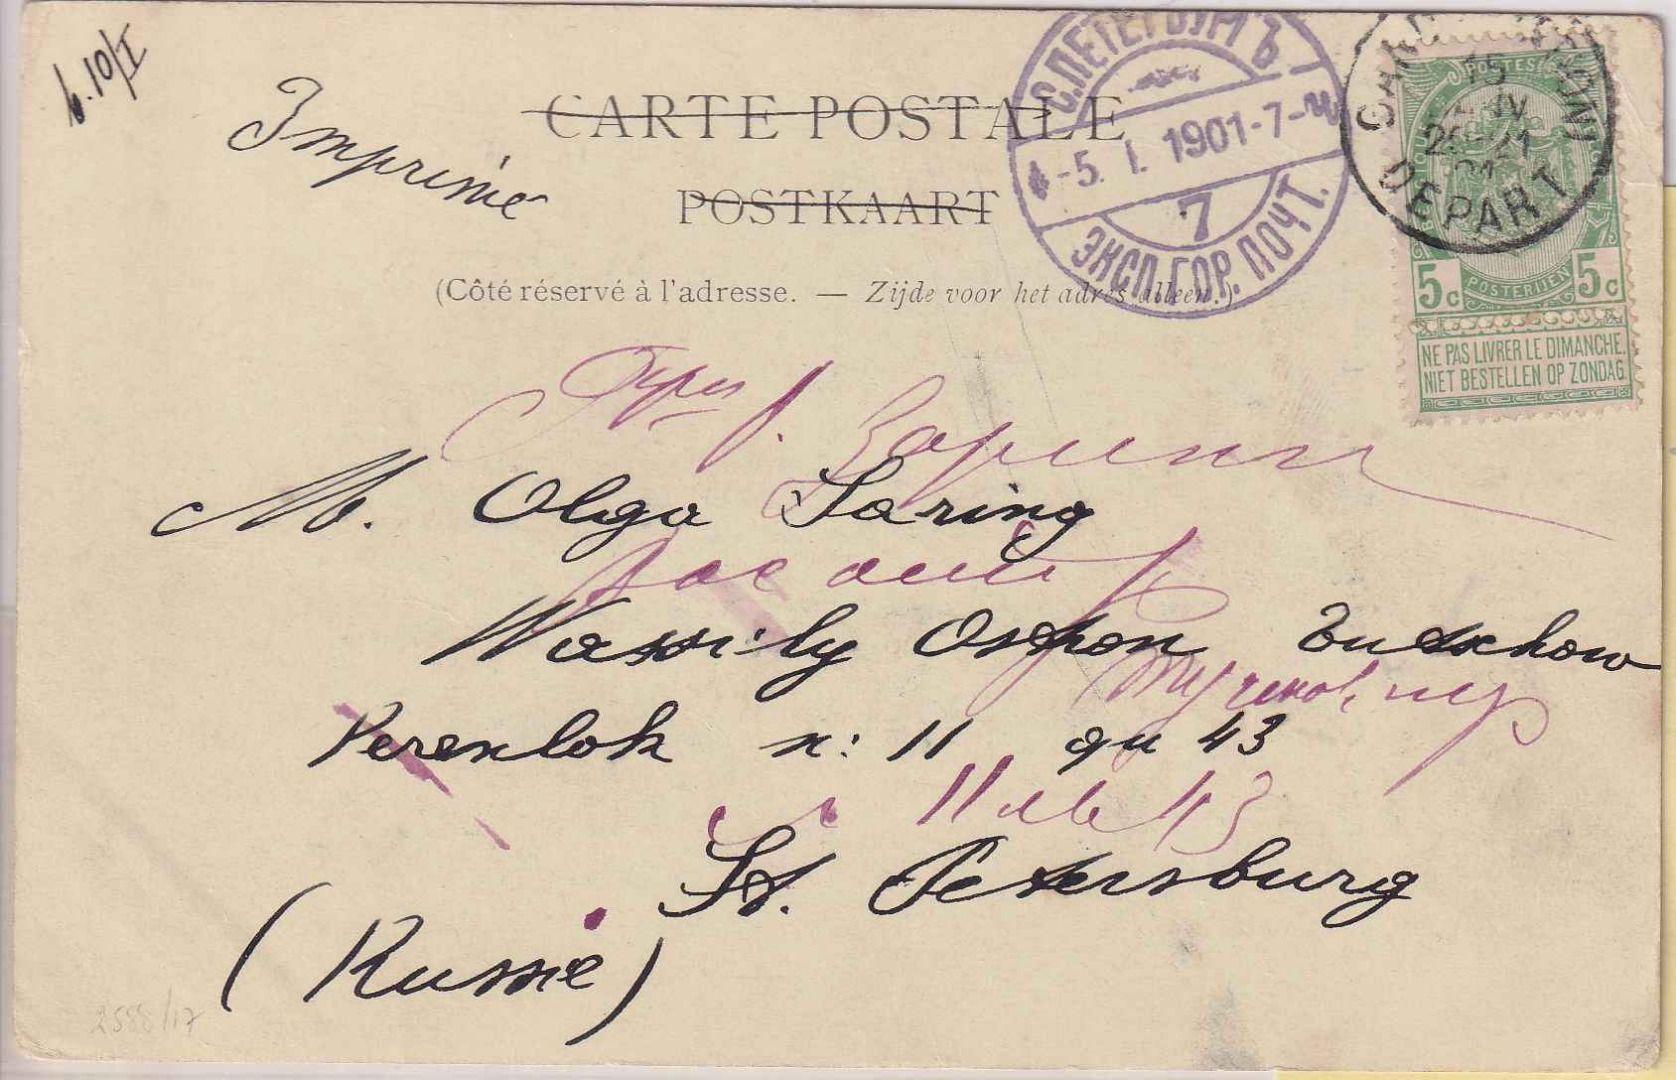 6.10/I
Imprimé
CARTE POSTALE
POSTKAART
(Côté réservé à l'adresse. — Zijde voor het adres alleen.)
С.ПЕТЕРБУРГЪ
-5. I. 1901-7-Ч
7
ЭКСП.ГОР. ПОЧТ.
15
JANV
DEPART
POSTERIJEN
5c 5c
NE PAS LIVRER LE DIMANCHE.
NIET BESTELLEN OP ZONDAG.
Зарингъ
M. Olga Saring
Wassily Ostron Tutschkow
Perenlok n: 11 qu 43
11 кв 43
St. Petersburg
(Russie)
2588/17